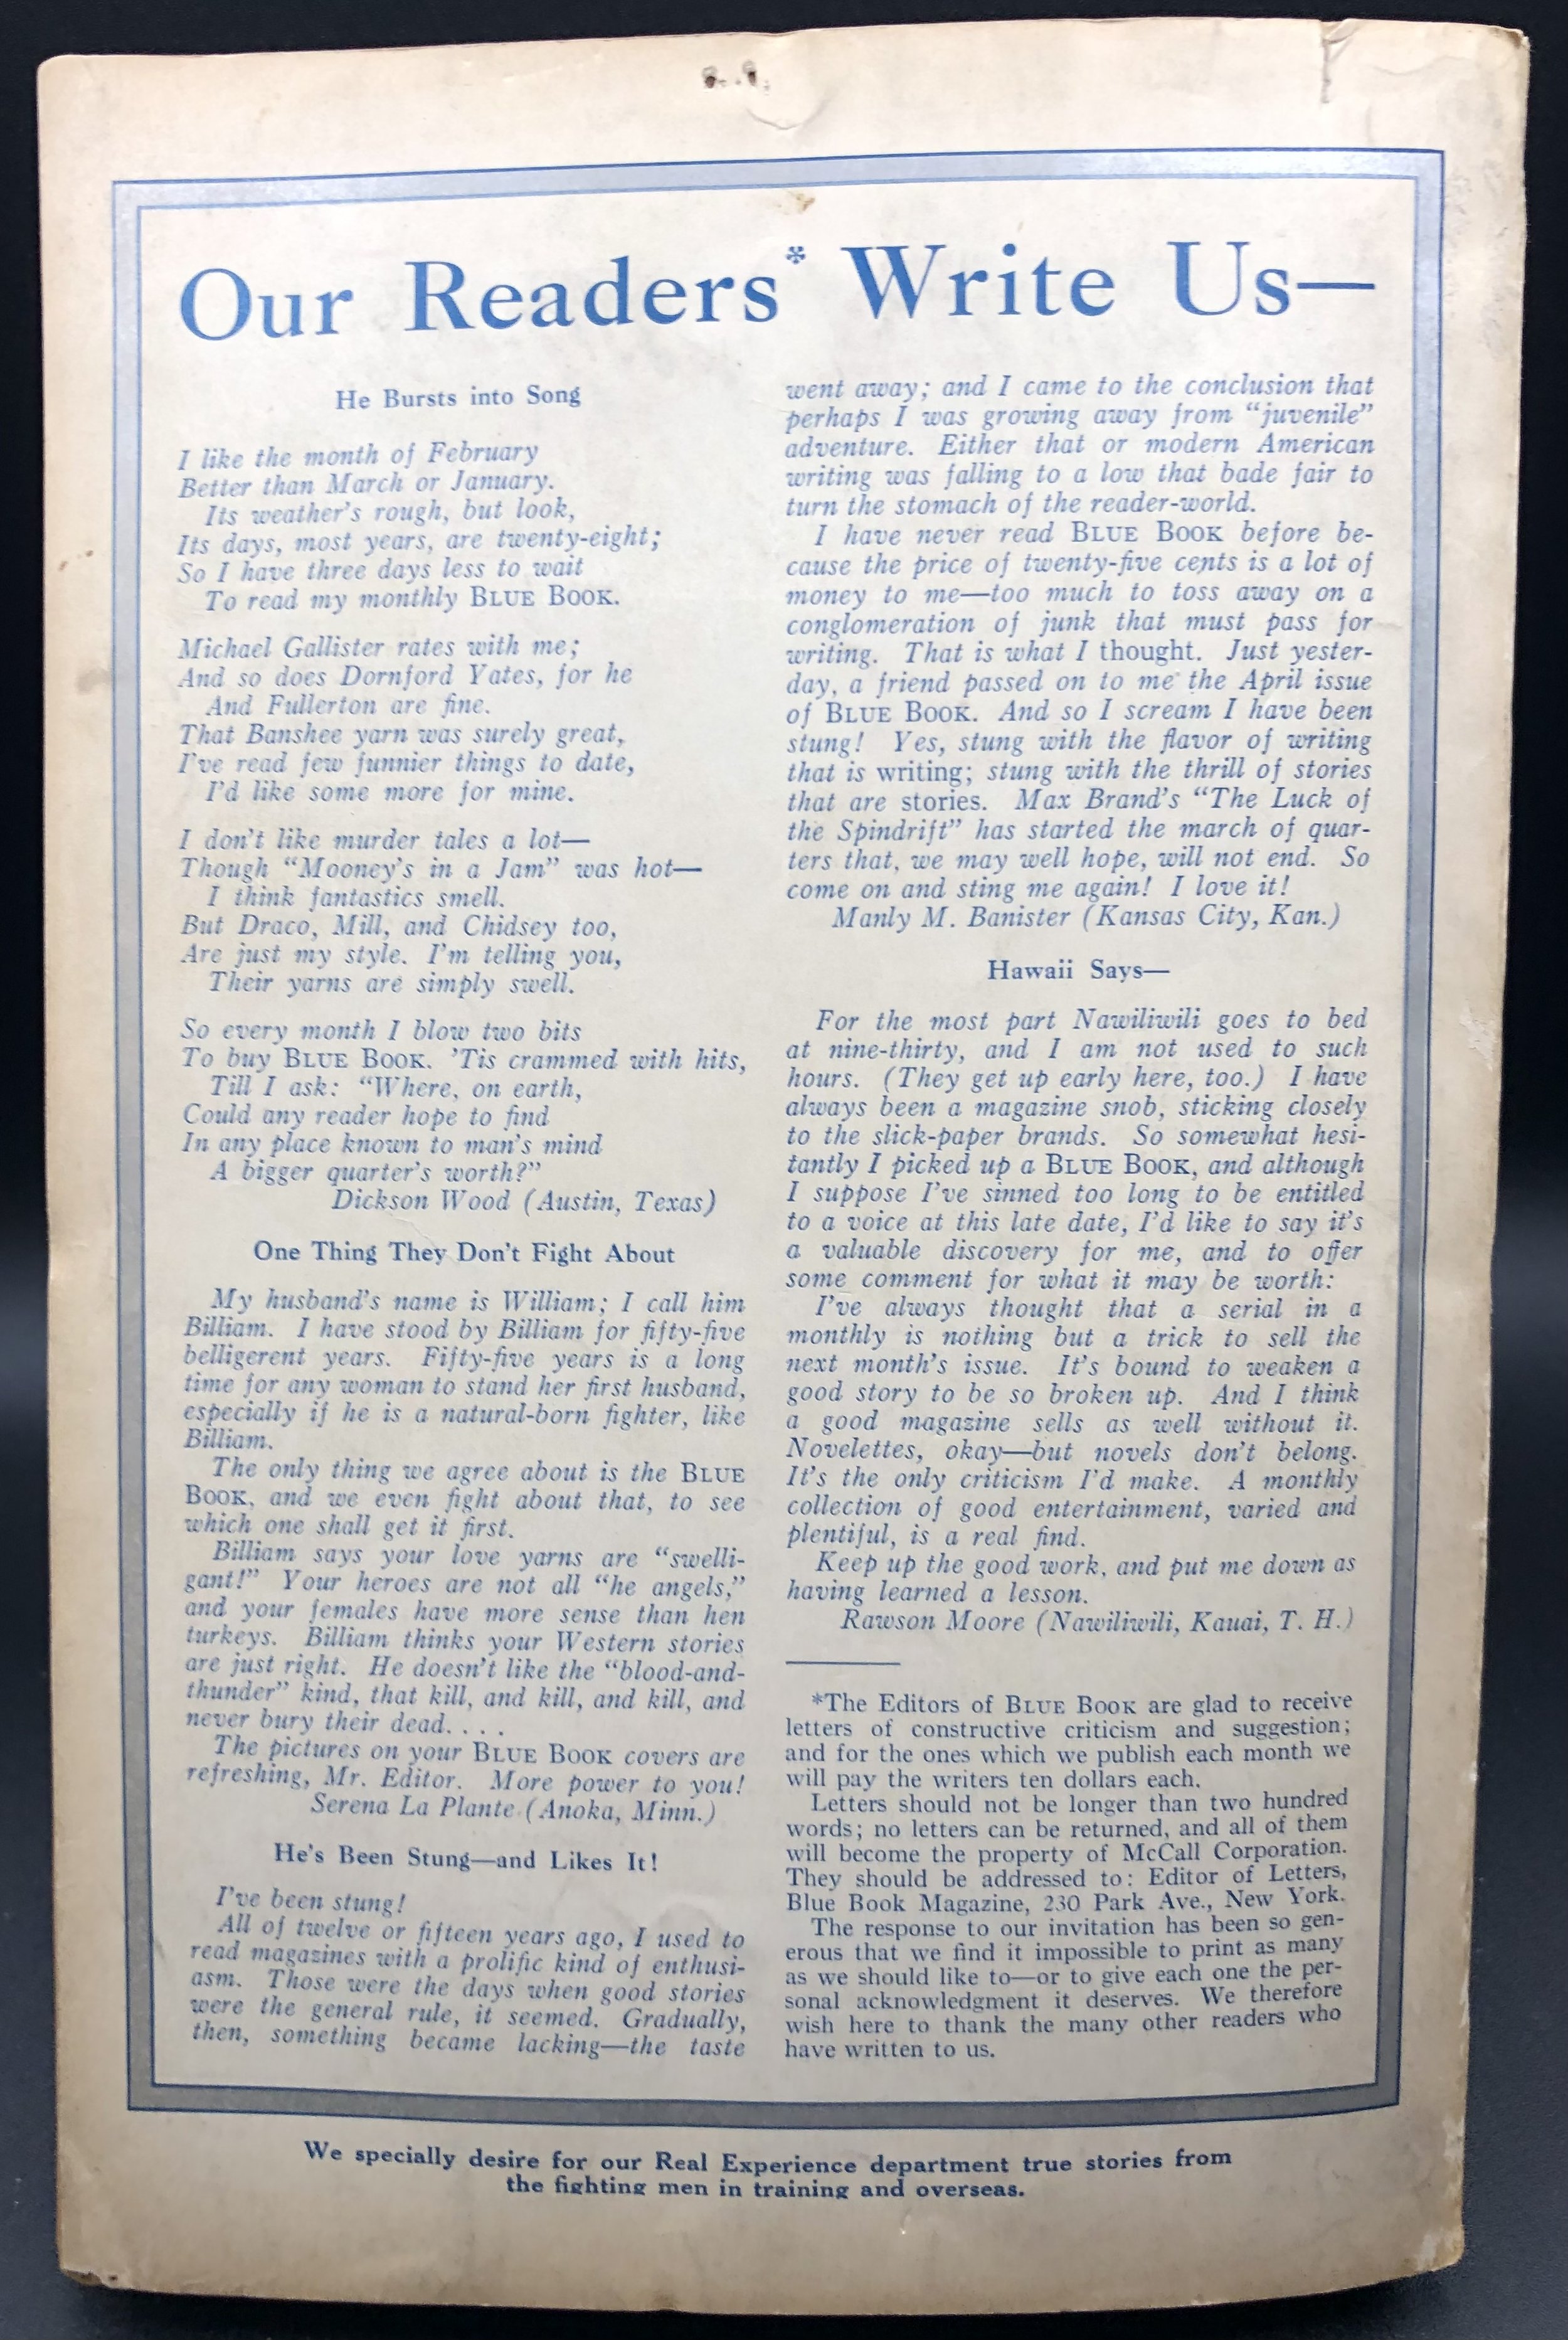 Our Readers* Write Us—
He Bursts into Song
I like the month of February
Better than March or January.
Its weather's rough, but look,
Its days, most years, are twenty-eight;
So I have three days less to wait
To read my monthly BLUE BOOK.
Michael Gallister rates with me;
And so does Dornford Yates, for he
And Fullerton are fine.
That Banshee yarn was surely great,
I've read few funnier things to date,
I'd like some more for mine.
I don't like murder tales a lot—
Though “Mooney's in a Jam” was hot—
I think fantastics smell.
But Draco, Mill, and Chidsey too,
Are just my style. I'm telling you,
Their yarns are simply swell.
So every month I blow two bits
To buy BLUE BOOK. 'Tis crammed with hits,
Till I ask: “Where, on earth,
Could any reader hope to find
In any place known to man's mind
A bigger quarter's worth?”
Dickson Wood (Austin, Texas)
One Thing They Don't Fight About
My husband's name is William; I call him
Billiam. I have stood by Billiam for fifty-five
belligerent years. Fifty-five years is a long
time for any woman to stand her first husband,
especially if he is a natural-born fighter, like
Billiam.
The only thing we agree about is the BLUE
BOOK, and we even fight about that, to see
which one shall get it first.
Billiam says your love yarns are “swelli-
gant!” Your heroes are not all “he angels,”
and your females have more sense than hen
turkeys. Billiam thinks your Western stories
are just right. He doesn't like the “blood-and-
thunder” kind, that kill, and kill, and kill, and
never bury their dead. . . .
The pictures on your BLUE BOOK covers are
refreshing, Mr. Editor. More power to you!
Serena La Plante (Anoka, Minn.)
He's Been Stung—and Likes It!
I've been stung!
All of twelve or fifteen years ago, I used to
read magazines with a prolific kind of enthusi-
asm. Those were the days when good stories
were the general rule, it seemed. Gradually,
then, something became lacking—the taste
went away; and I came to the conclusion that
perhaps I was growing away from “juvenile”
adventure. Either that or modern American
writing was falling to a low that bade fair to
turn the stomach of the reader-world.
I have never read BLUE BOOK before be-
cause the price of twenty-five cents is a lot of
money to me—too much to toss away on a
conglomeration of junk that must pass for
writing. That is what I thought. Just yester-
day, a friend passed on to me the April issue
of BLUE BOOK. And so I scream I have been
stung! Yes, stung with the flavor of writing
that is writing; stung with the thrill of stories
that are stories. Max Brand's “The Luck of
the Spindrift” has started the march of quar-
ters that, we may well hope, will not end. So
come on and sting me again! I love it!
Manly M. Banister (Kansas City, Kan.)
Hawaii Says—
For the most part Nawiliwili goes to bed
at nine-thirty, and I am not used to such
hours. (They get up early here, too.) I have
always been a magazine snob, sticking closely
to the slick-paper brands. So somewhat hesi-
tantly I picked up a BLUE BOOK, and although
I suppose I've sinned too long to be entitled
to a voice at this late date, I'd like to say it's
a valuable discovery for me, and to offer
some comment for what it may be worth:
I've always thought that a serial in a
monthly is nothing but a trick to sell the
next month's issue. It's bound to weaken a
good story to be so broken up. And I think
a good magazine sells as well without it.
Novelettes, okay—but novels don't belong.
It's the only criticism I'd make. A monthly
collection of good entertainment, varied and
plentiful, is a real find.
Keep up the good work, and put me down as
having learned a lesson.
Rawson Moore (Nawiliwili, Kauai, T. H.)
*The Editors of BLUE BOOK are glad to receive
letters of constructive criticism and suggestion;
and for the ones which we publish each month we
will pay the writers ten dollars each.
Letters should not be longer than two hundred
words; no letters can be returned, and all of them
will become the property of McCall Corporation.
They should be addressed to: Editor of Letters,
Blue Book Magazine, 230 Park Ave., New York.
The response to our invitation has been so gen-
erous that we find it impossible to print as many
as we should like to—or to give each one the per-
sonal acknowledgment it deserves. We therefore
wish here to thank the many other readers who
have written to us.
We specially desire for our Real Experience department true stories from
the fighting men in training and overseas.